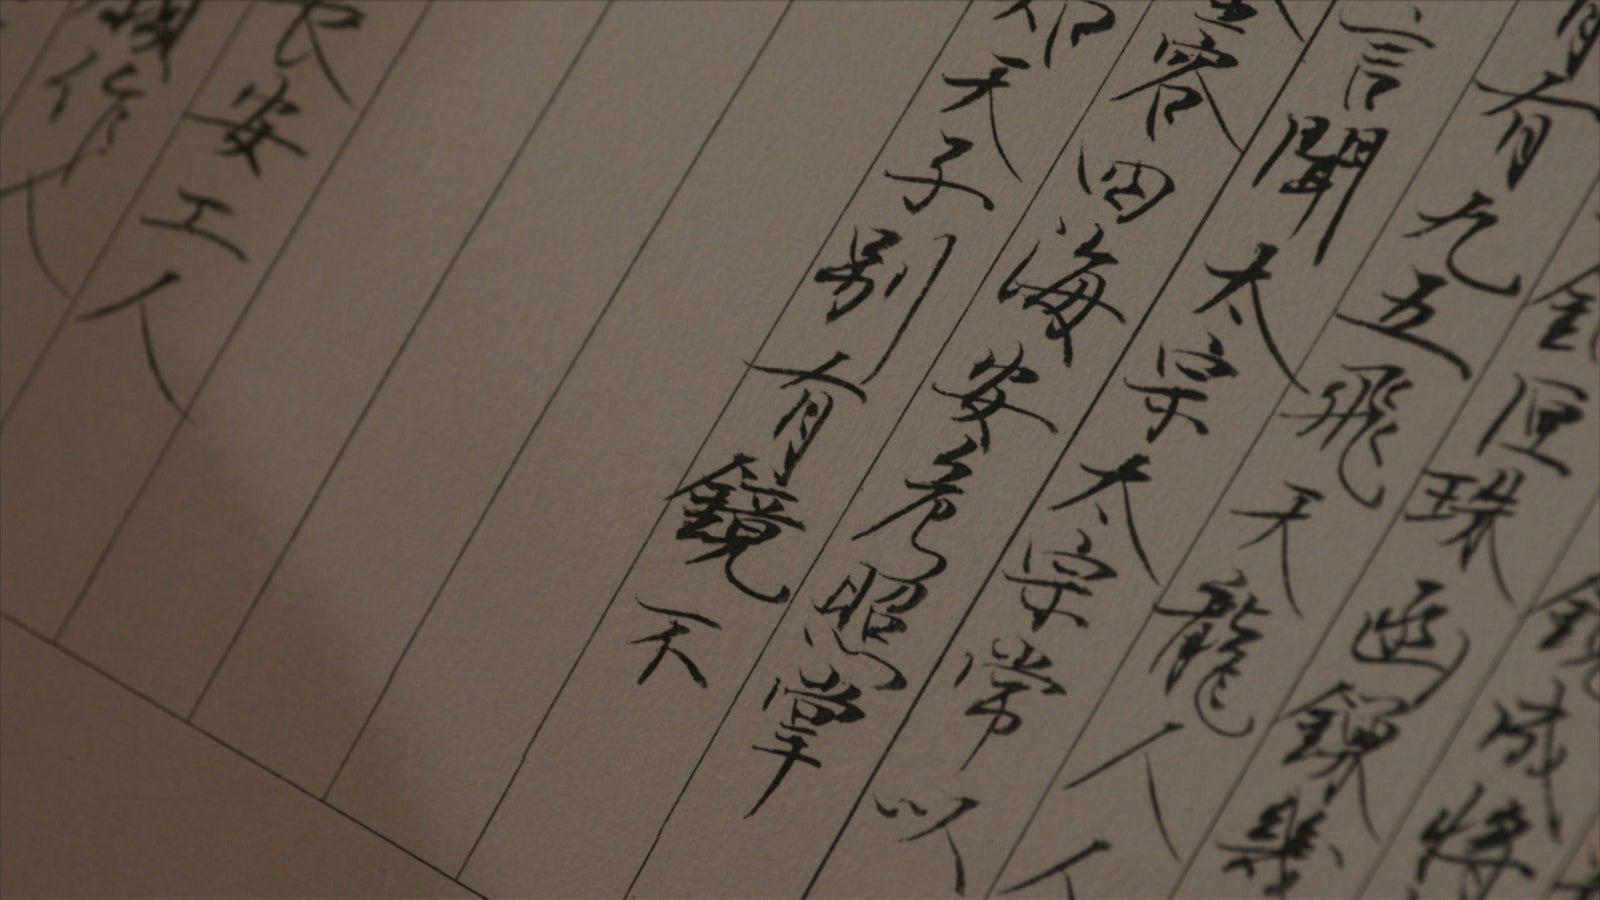 鏡成將
匣珠函鏁幾
有九五飛天龍人人
言聞太宗太宗常以
容四海安危照掌
知天子別有鏡不
長安工人
作人